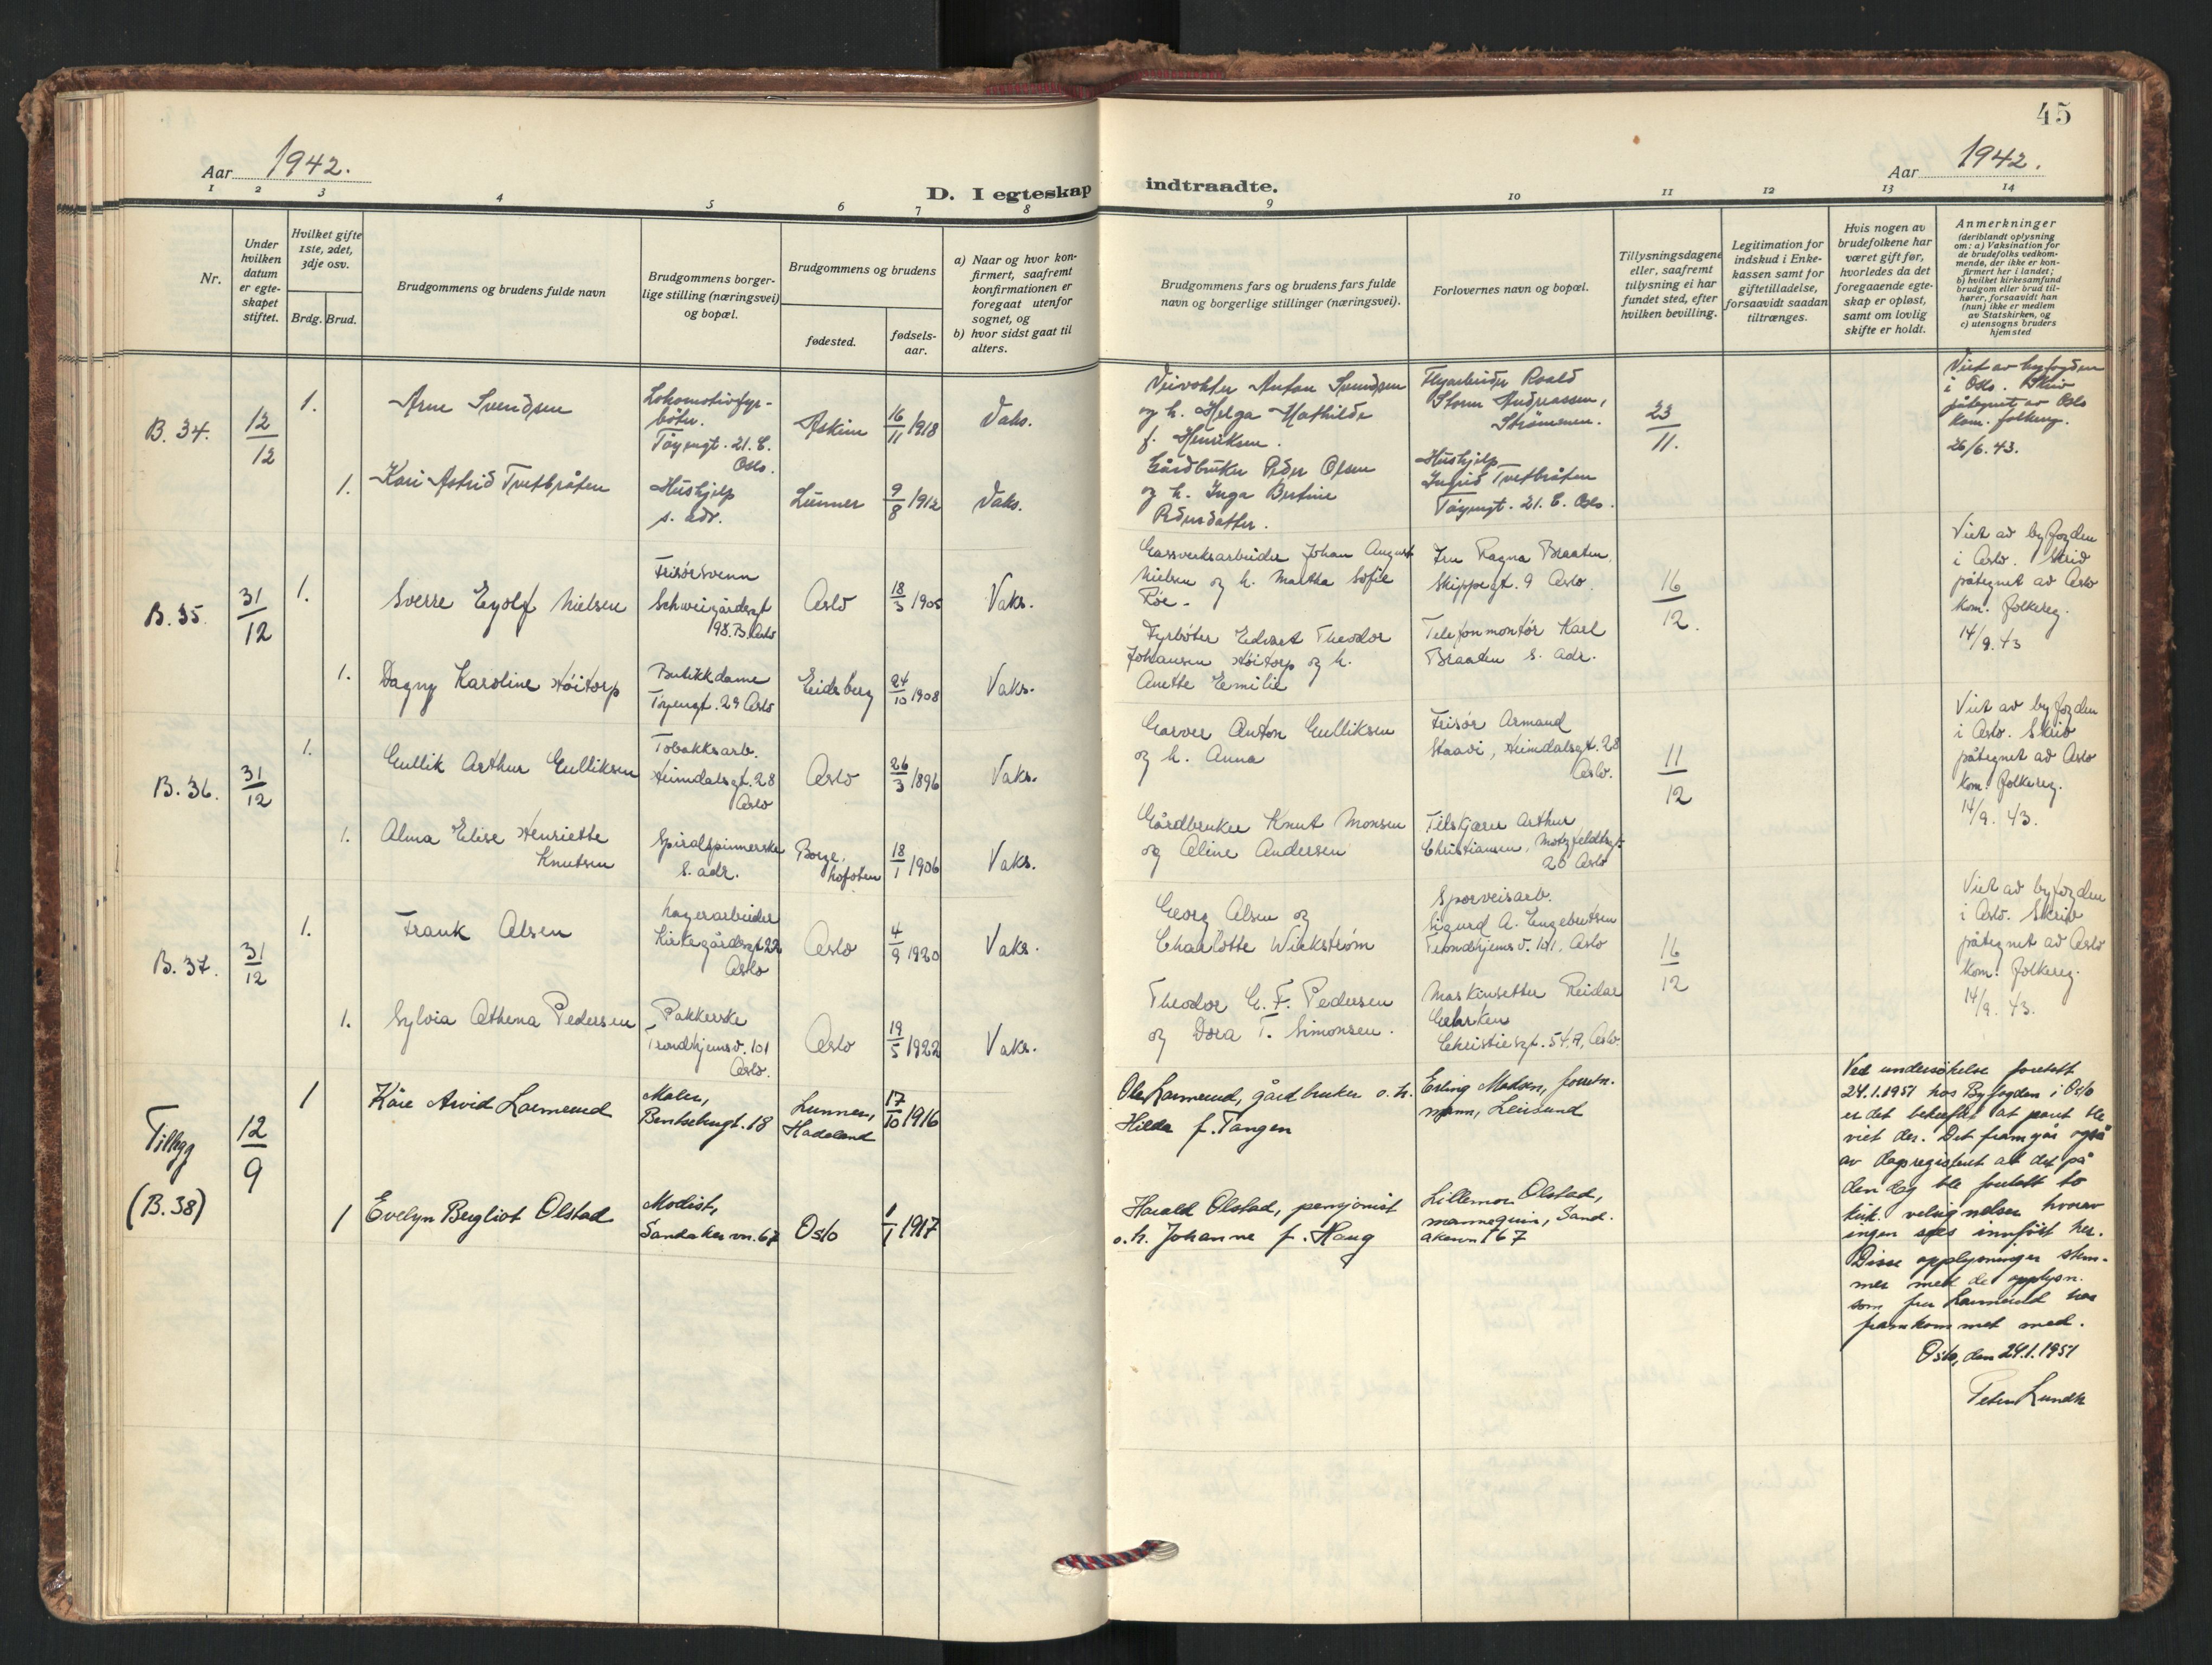 45
Aar 1942.
Aar 1942.
D. I egteskap indtraadte.
1 2 3 4 5 6 7 8 9 10 11 12 13 14
Nr.
Under hvilken datum er egte-skapet stiftet.
Hvilket gifte 1ste, 2det, 3dje osv.
Brdg. Brud.
Brudgommens og brudens fulde navn
Brudgommens borger-lige stilling (næringsvei) og bopæl.
Brudgommens og brudens
fødested.
fødsels-aar.
a) Naar og hvor kon-firmert, saafremt konfirmationen er foregaat utenfor sognet, og
b) hvor sidst gaat til alters.
Brudgommens fars og brudens fars fulde navn og borgerlige stillinger (næringsvei).
Forlovernes navn og bopæl.
Tillysningsdagene eller, saafremt tillysning ei har fundet sted, efter hvilken bevilling.
Legitimation for indskud i Enke-kassen samt for giftetilladelse, forsaavidt saadan tiltrænges.
Hvis nogen av brudefolkene har været gift før, hvorledes da det foregaaende egte-skap er opløst, samt om lovlig skifte er holdt.
Anmerkninger
(deriblandt oplysning om: a) Vaksination for de brudefolks vedkom-mende, der ikke er kon-firmert her i landet; b) hvilket kirkesamfund brudgom eller brud til-hører, forsaavidt han (hun) ikke er medlem av Statskirken, og c) utensogns bruders hjemsted
B. 34.
12/12
1.
Arne Svendsen
Lokomotivfyr-
bøter.
Tøyengt. 21. C.
Oslo.
Askim
16/11 1918
Vaks.
Veivokter Anton Svendsen
og h. Helga Mathilde
f. Henriksen.
Flyarbeider Roald
Storm Andreassen,
Strømmen.
23/11.
Viet av byfogden
i Oslo. Skriv
påtegnet av Oslo
kom. folkereg.
26/6. 43.
1.
Kari Astrid Tvetbråten
Hushjelp
s. adr.
Lunner
9/8 1912
Vaks.
Gårdbruker Peder Olsen
og h. Inga Bertine
Pedersdatter.
Hushjelp
Ingrid Tvetbråten
Tøyengt. 21. C. Oslo.
B. 35.
31/12
1.
Sverre Eyolf Nielsen
Frisørsvenn
Schweigårdsgt
98. B. Oslo
Oslo
18/3 1905
Vaks.
Gassverksarbeider Johan August
Nielsen og h. Martha Sofie
Röe.
Fru Ragna Braaten,
Skippergt. 9 Oslo.
16/12.
Viet av byfogden
i Oslo. Skriv
påtegnet av Oslo
kom. folkereg.
14/9. 43
1.
Dagny Karoline Høitorp
Butikkdame
Tøyengt. 29 Oslo
Eidsberg
24/10 1908
Vaks.
Fyrbøter Edvart Theodor
Johansen Høitorp og h.
Anette Emilie
Telefonmontør Karl
Braaten s. adr.
B. 36.
31/12
1.
Gullik Arthur Gulliksen
Tobakksarb.
Heimdalsgt. 28
Oslo
Oslo
26/3 1896
Vaks.
Garver Anton Gulliksen
og h. Anna
Frisør Armand
Staavi, Heimdalsgt. 28
Oslo.
11/12
Viet av byfogden
i Oslo. Skriv
påtegnet av Oslo
kom. folkereg.
14/9. 43.
1.
Alma Elise Henriette
Knutsen
Spiralspinnerske
s. adr.
Borge,
Lofoten
18/1 1906
Vaks.
Gårdbruker Knut Monsen
og Aline Andersen
Tilskjærer Arthur
Christiansen, Motzfeldtsgt.
20 Oslo
B. 37.
31/12
1.
Frank Olsen
Lagerarbeider
Kirkegårdsgt 22
Oslo
Oslo
4/9 1920
Vaks.
Georg Olsen og
Charlotte Wickstrøm
Sporveisarb.
Sigurd A. Engebretsen
Trondhjemsv. 101, Oslo
16/12
Viet av byfogden
i Oslo. Skriv
påtegnet av Oslo
kom. folkereg.
14/9. 43.
1.
Sylvia Athena Pedersen
Pakkerske
Trondhjemsv. 101
Oslo.
Oslo
19/5 1922
Vaks.
Theodor G. F. Pedersen
og Dora T. Simonsen.
Maskinsetter Reidar
Christiesgt. 54. A, Oslo.
Tillegg
(B. 38)
12/9
1
Kåre Arvid Larmerud
Maler,
Bentsebrugt. 18
Lunner,
Hadeland
17/10 1916
Ole Larmerud, gårdbruker o. h.
Hilda f. Tangen
Erling Madsen, forretn.
mann, Leirsund
Ved undersøkelse foretatt
24.1.1951 hos Byfogden i Oslo
er det bekreftet at paret ble
viet der. Det framgår også
av dagregisteret at det på
den dag ble foretatt to
kirk. velsignelser hvorav
ingen sees innført her.
Disse opplysninger stem-
mer med de opplysn.
som fru Larmerud har
framkommet med.
Oslo, den 24.1.1951
Peter Lundh
1
Evelyn Bergliot Olstad
Modist,
Sandakervn. 67
Oslo
1/1 1917
Harald Olstad, pensjonist
o. h. Johanne f. Haug
Lillemor Olstad,
mannequin, Sand-
akervn 67